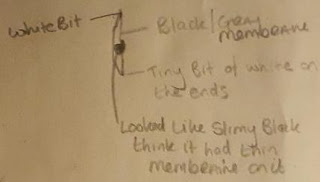 WhiteBit
Black/Grey
membrane
Tiny Bit of white on
the ends
Looked Like Slimy Black
think it had thin
membrane on it